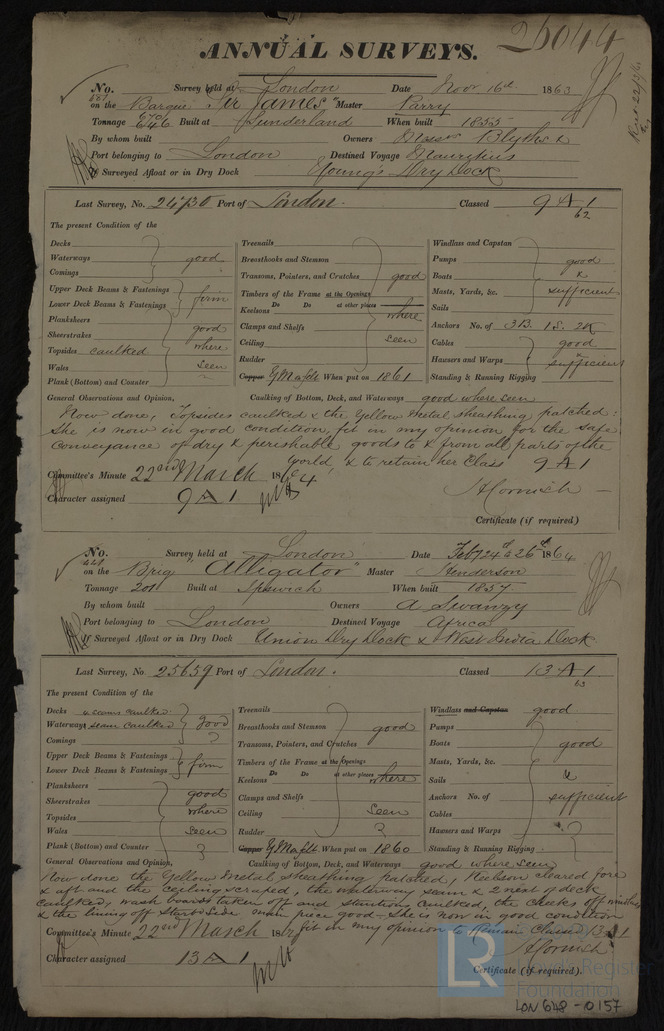 26044
ANNUAL SURVEYS.
No. Survey held at London Date Nov 16th 1863
on the Barque "Sir James" Master Parry
Tonnage 670/646 Built at Sunderland When built 1855
By whom built Owners Messrs Blyths &
Port belonging to London Destined Voyage Mauritius
If Surveyed Afloat or in Dry Dock Young's Dry Dock
Last Survey, No. Port of London. Classed 9 A 1
62
The present Condition of the
Decks
Waterways good
Comings
Upper Deck Beams & Fastenings
Lower Deck Beams & Fastenings firm
Planksheers
Sheerstrakes good
Topsides caulked where
Wales seen
Plank (Bottom) and Counter
Treenails
Breasthooks and Stemson
Transoms, Pointers, and Crutches good
Timbers of the Frame at the Openings
Do Do at other places
Keelsons where
Clamps and Shelfs
Ceiling seen
Rudder
Copper Y Metal When put on 1861
Windlass and Capstan
Pumps good
Boats &
Masts, Yards, &c. sufficient
Sails
Anchors No. of 3 B. 1 S. 2 K
Cables good
Hawsers and Warps sufficient
Standing & Running Rigging
General Observations and Opinion, Caulking of Bottom, Deck, and Waterways good where seen
Now done, Topsides caulked & the Yellow Metal sheathing patched:
She is now in good condition, fit in my opinion for the safe
conveyance of dry & perishable goods to & from all parts of the
World, & to retain her Class 9 A 1
Committee's Minute 22nd March 1864
Character assigned 9 A 1.
Certificate (if required)
No. Survey held at London Date Feby 24th & 26th 1864
on the Brig "Alligator" Master Henderson
Tonnage 201 Built at Ipswich When built 1857
By whom built Owners A Swanzy
Port belonging to London Destined Voyage Africa
If Surveyed Afloat or in Dry Dock Union Dry Dock & West India Dock
Last Survey, No 25659 Port of London. Classed 13 A 1
63
The present Condition of the
Decks 4 seams caulked
Waterways seam caulked good
Comings
Upper Deck Beams & Fastenings
Lower Deck Beams & Fastenings firm
Planksheers good
Sheerstrakes
Topsides where
Wales seen
Plank (Bottom) and Counter
Treenails
Breasthooks and Stemson good
Transoms, Pointers, and Crutches
Timbers of the Frame at the Openings
Do Do at other places
Keelsons where
Clamps and Shelfs
Ceiling seen
Rudder
Copper Y Metal When put on 1860
Windlass and Capstan good
Pumps
Boats good
Masts, Yards, &c.
Sails &
Anchors No. of sufficient
Cables
Hawsers and Warps
Standing & Running Rigging
General Observations and Opinion, Caulking of Bottom, Deck, and Waterways good where seen
Now done the Yellow Metal sheathing patched, Keelson cleared fore
& aft and the ceiling scraped, the waterway seam & 2 next of deck
caulked, wash boards taken off and stantions caulked, the cheeks off windlass
& the lining off Starbd Side main piece good - she is now in good condition
fit in my opinion to Remain Classed 13 A 1
Committee's Minute 22nd March 186
Character assigned 13 A 1
Certificate (if required)
LR
Lloyd's Register
Foundation
LON 648-0157